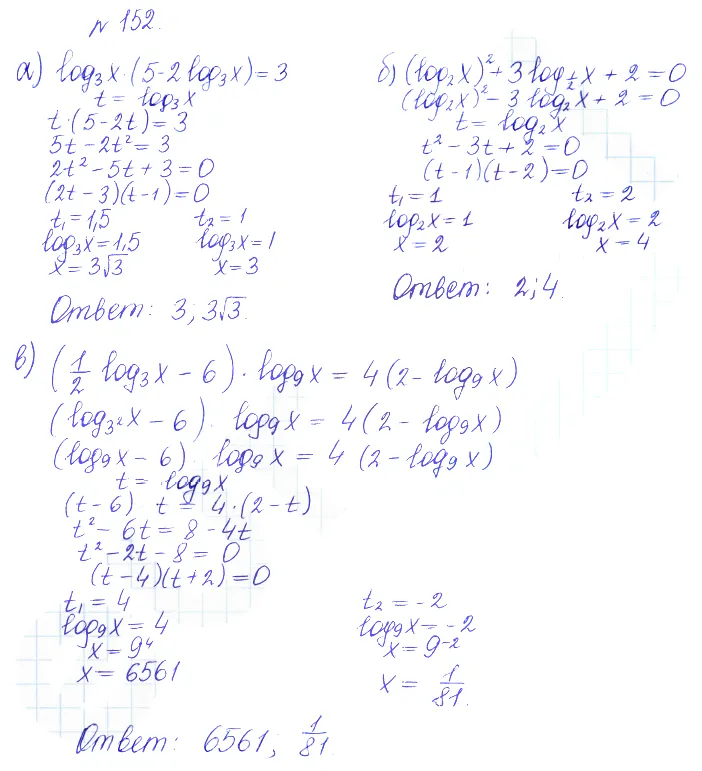 № 152.
а) log₃x·(5-2log₃x)=3
t = log₃x
t·(5-2t)=3
5t-2t²=3
2t²-5t+3=0
(2t-3)(t-1)=0
t₁=1,5 t₂=1
log₃x=1,5 log₃x=1
x=3√3 x=3
Ответ: 3; 3√3.
б) (log₂x)²+3log_{1/2}x+2=0
(log₂x)²-3log₂x+2=0
t=log₂x
t²-3t+2=0
(t-1)(t-2)=0
t₁=1 t₂=2
log₂x=1 log₂x=2
x=2 x=4
Ответ: 2; 4.
в) (1/2 log₃x-6)·log₉x=4(2-log₉x)
(log_{3²}x-6)·log₉x=4(2-log₉x)
(log₉x-6)·log₉x=4(2-log₉x)
t=log₉x
(t-6)·t=4·(2-t)
t²-6t=8-4t
t²-2t-8=0
(t-4)(t+2)=0
t₁=4 t₂=-2
log₉x=4 log₉x=-2
x=9⁴ x=9⁻²
x=6561 x=1/81.
Ответ: 6561; 1/81.